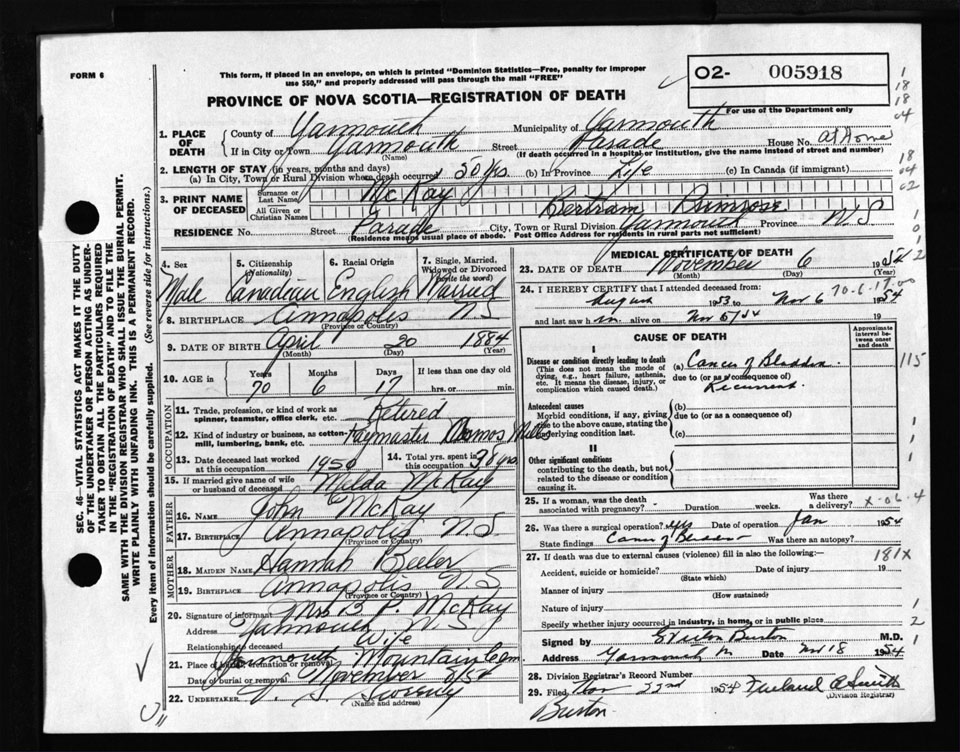 FORM 6
This form, if placed in an envelope, on which is printed "Dominion Statistics—Free, penalty for improper
use $50," and properly addressed will pass through the mail "FREE"
O2- 005918
For use of the Department only
PROVINCE OF NOVA SCOTIA—REGISTRATION OF DEATH
1. PLACE OF DEATH
County of Yarmouth Municipality of Yarmouth
If in City or Town Yarmouth Street Parade House No. at Home
(Name) (If death occurred in a hospital or institution, give the name instead of street and number)
2. LENGTH OF STAY (in years, months and days)
(a) In City, Town or Rural Division where death occurred 50 yrs. (b) in Province Life (c) In Canada (if immigrant)
3. PRINT NAME OF DECEASED
Surname or Last Name McKay
All Given or Christian Names Bertram
RESIDENCE No. Street Parade City, Town or Rural Division Yarmouth Province N.S
(Residence means usual place of abode. Post Office Address for residents in rural parts not sufficient)
4. Sex Male
5. Citizenship (Nationality) Canadian
6. Racial Origin English
7. Single, Married, Widowed or Divorced (write the word) Married
8. BIRTHPLACE Annapolis N S
(Province or Country)
9. DATE OF BIRTH April 20 1884
(Month) (Day) (Year)
10. AGE in Years Months Days If less than one day old
70 6 17 hrs. or min.
OCCUPATION
11. Trade, profession, or kind of work as
spinner, teamster, office clerk, etc. Retired
12. Kind of industry or business, as cotten-
mill, lumbering, bank, etc. Paymaster Cosmos Mill
13. Date deceased last worked
at this occupation 1950
14. Total yrs. spent in
this occupation 38 yrs
15. If married give name of wife
or husband of deceased Milda McKay
FATHER
16. NAME John McKay
17. BIRTHPLACE Annapolis N.S
(Province or Country)
MOTHER
18. MAIDEN NAME Hannah Beeler
19. BIRTHPLACE Annapolis N S
(Province or Country)
20. Signature of informant Mrs B P. McKay
Address Yarmouth N.S
Relationship to deceased Wife
21. Place of burial, cremation or removal Yarmouth Mountain Cem
Date of burial or removal November 8/54
22. UNDERTAKER Sweeney
(Name and address)
MEDICAL CERTIFICATE OF DEATH
23. DATE OF DEATH November 6 1954
(Month) (Day) (Year)
24. I HEREBY CERTIFY that I attended deceased from: 70-6-17-00
August 1953 to Nov 6 1954
and last saw h m alive on Nov 5/54 19
CAUSE OF DEATH
Approximate interval between onset and death
I
Disease or condition directly leading to death
(This does not mean the mode of dying, e.g., heart failure, asthenia, etc. It means the disease, injury, or complication which caused death.)
(a) Cancer of Bladder
due to (or as a consequence) of
Recurrent
115
Antecedent causes
Morbid conditions, if any, giving rise to the above cause, stating the underlying condition last.
(b)
due to (or as a consequence of)
(c)
II
Other significant conditions
contributing to the death, but not related to the disease or condition causing it.
25. If a woman, was the death
associated with pregnancy? Duration weeks. Was there a delivery?
X-06-4
26. Was there a surgical operation? yes Date of operation Jan 1954
State findings Cancer of Bladder Was there an autopsy?
27. If death was due to external causes (violence) fill in also the following:—
181X
Accident, suicide or homicide? Date of injury 19
(State which)
Manner of injury
(How sustained)
Nature of injury
Specify whether injury occurred in industry, in home, or in public place
Signed by Burton M.D.
Address Yarmouth Date Nov 18 1954
28. Division Registrar's Record Number
29. Filed Nov 22nd 1954 Smith
(Division Registrar)
Burton
SEC. 46—VITAL STATISTICS ACT MAKES IT THE DUTY
OF THE UNDERTAKER OR PERSON ACTING AS UNDER-
TAKER TO OBTAIN ALL THE PARTICULARS REQUIRED
IN THE "REGISTRATION OF DEATH" AND TO FILE THE
SAME WITH THE DIVISION REGISTRAR WHO SHALL ISSUE THE BURIAL PERMIT.
WRITE PLAINLY WITH UNFADING INK. THIS IS A PERMANENT RECORD.
Every item of information should be carefully supplied. (See reverse side for instructions.)
1
18
18
04
18
04
02
1
0
1
2
1
1
1
1
2
1